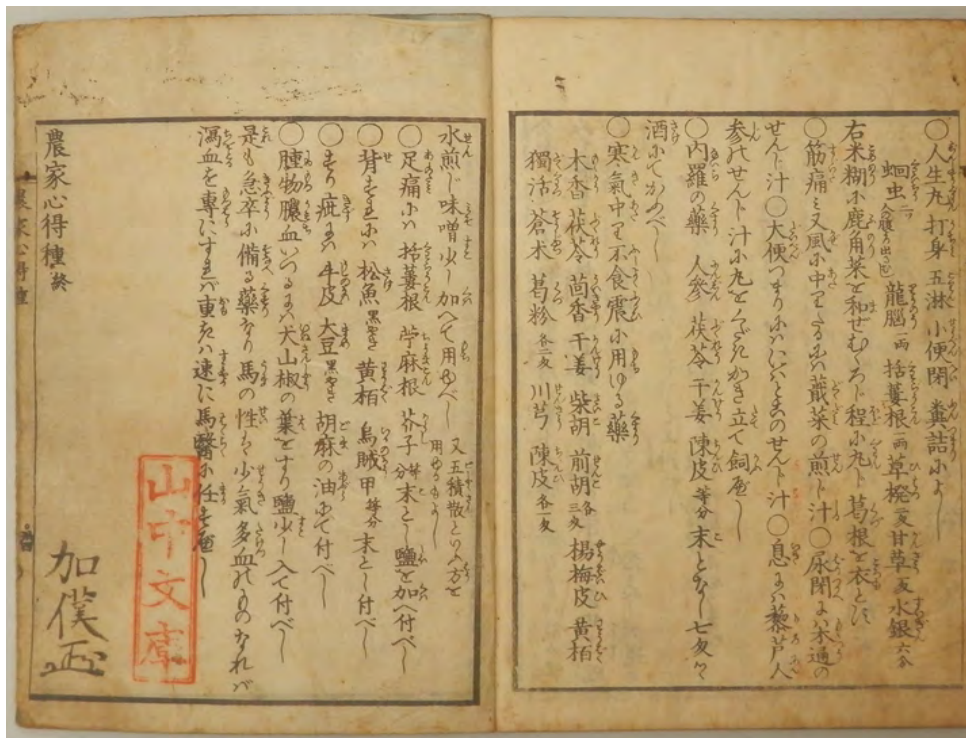 〇人生丸 打身 五淋 小便閉 糞詰によし
蛔虫ニ 龍脳一両 括蔞根一両 草撥二匁 甘草一匁 水銀六分
右米糊に鹿角菜を和せむくろじ程に丸じ葛根を衣とす
〇筋痛ミ又風に中りたるにハ蕺菜の煎じ汁〇尿閉にハ木通の
せんじ汁〇大便つまりにハ のせんじ汁〇息にハ藜芦人
参のせんじ汁に丸を かき立て飼べし
〇内羅の薬 人参 茯苓 干姜 陳皮等分 末となし七匁ツヽ
酒にて べし
〇寒気中り不食震に用ゆる薬
木香 茯苓 茴香 干姜 柴胡 前胡各三匁 楊梅皮 黄栢
獨活 蒼朮 葛粉各二匁 川芎 陳皮各一匁
水煎じ味噌少し加へて用ゆべし 又五積散といふ方を用ゆるもよし
〇足痛にハ 括蔞根 苧麻根 芥子等分末とし鹽を加へ付べし
〇背 にハ 松魚黒やき 黄栢 烏賊甲等分 末とし付べし
〇すり疵にハ 牛皮 大豆黒やき 胡麻の油にて付べし
〇腫物膿血いづるにハ犬山椒の葉をすり鹽少し入て付べし
是も急卒に備る薬なり馬の性ハ少氣多血のものなれバ
瀉血を専にすべし重きハ速に馬醫に任すべし
農家心得種終
農家心得種
山中文庫
加僕